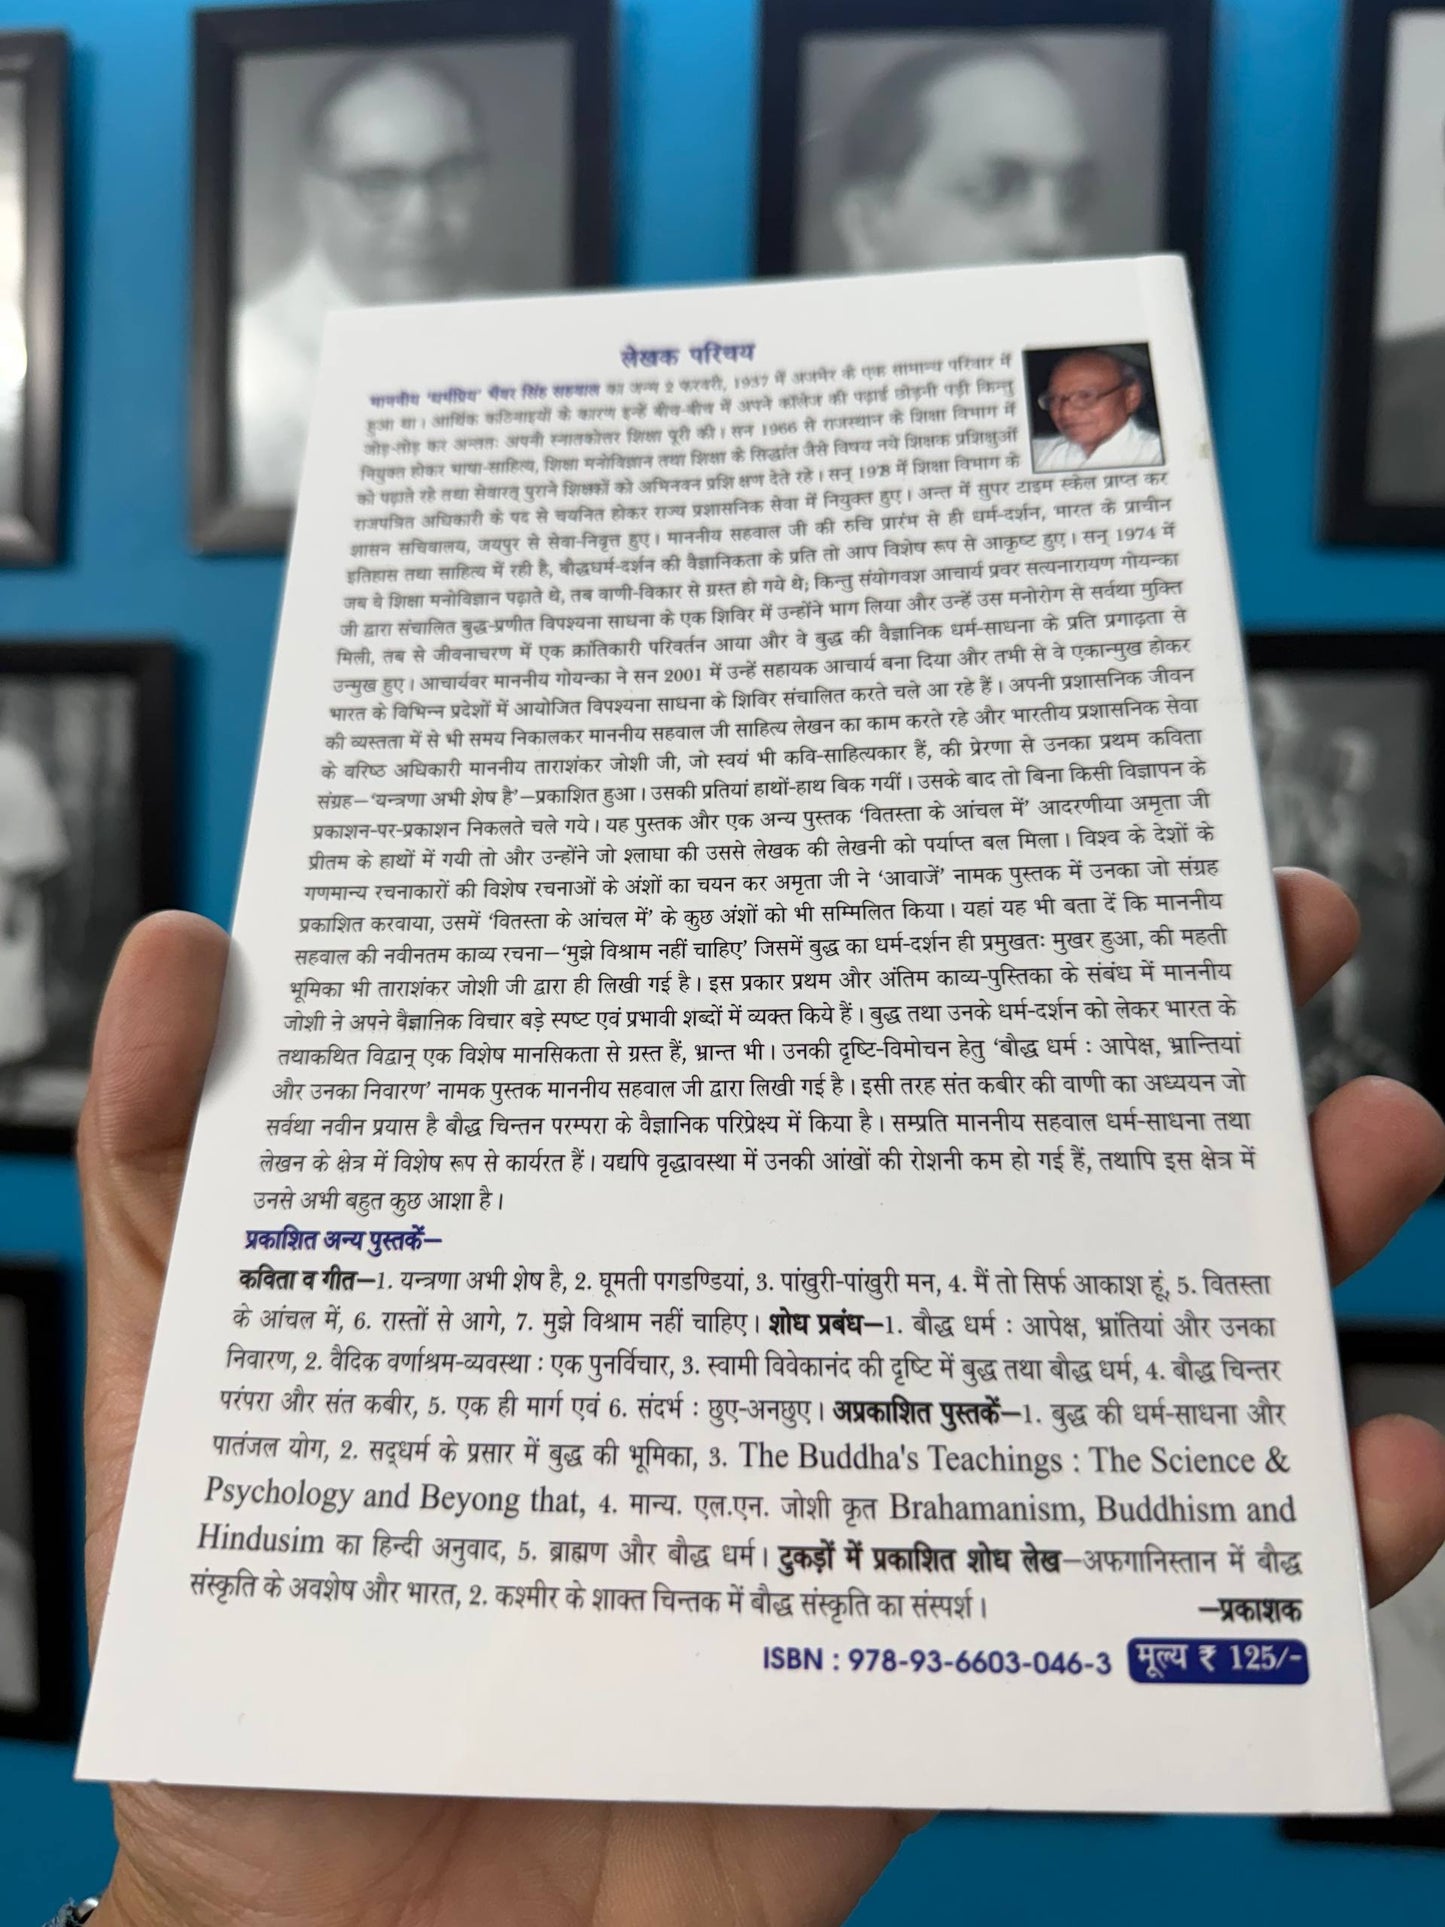 लेखक परिचय
माननीय 'धर्मप्रिय' भँवर सिंह सहवाल का जन्म 2 फरवरी, 1937 में अजमेर के एक सामान्य परिवार में
हुआ था। आर्थिक कठिनाइयों के कारण इन्हें बीच-बीच में अपने कॉलेज की पढ़ाई छोड़नी पड़ी किन्तु
जोड़-तोड़ कर अन्ततः अपनी स्नातकोत्तर शिक्षा पूरी की। सन 1966 से राजस्थान के शिक्षा विभाग में
नियुक्त होकर भाषा-साहित्य, शिक्षा मनोविज्ञान तथा शिक्षा के सिद्धांत जैसे विषय नये शिक्षक प्रशिक्षुओं
को पढ़ाते रहे तथा सेवारत् पुराने शिक्षकों को अभिनवन प्रशि क्षण देते रहे। सन् 1978 में शिक्षा विभाग के
राजपत्रित अधिकारी के पद से चयनित होकर राज्य प्रशासनिक सेवा में नियुक्त हुए। अन्त में सुपर टाइम स्केल प्राप्त कर
शासन सचिवालय, जयपुर से सेवा-निवृत्त हुए। माननीय सहवाल जी की रुचि प्रारंभ से ही धर्म-दर्शन, भारत के प्राचीन
इतिहास तथा साहित्य में रही है, बौद्धधर्म-दर्शन की वैज्ञानिकता के प्रति तो आप विशेष रूप से आकृष्ट हुए। सन् 1974 में
जब वे शिक्षा मनोविज्ञान पढ़ाते थे, तब वाणी-विकार से ग्रस्त हो गये थे; किन्तु संयोगवश आचार्य प्रवर सत्यनारायण गोयन्का
जी द्वारा संचालित बुद्ध-प्रणीत विपश्यना साधना के एक शिविर में उन्होंने भाग लिया और उन्हें उस मनोरोग से सर्वथा मुक्ति
मिली, तब से जीवनाचरण में एक क्रांतिकारी परिवर्तन आया और वे बुद्ध की वैज्ञानिक धर्म-साधना के प्रति प्रगाढ़ता से
उन्मुख हुए। आचार्यवर माननीय गोयन्का ने सन 2001 में उन्हें सहायक आचार्य बना दिया और तभी से वे एकान्मुख होकर
भारत के विभिन्न प्रदेशों में आयोजित विपश्यना साधना के शिविर संचालित करते चले आ रहे हैं। अपनी प्रशासनिक जीवन
की व्यस्तता में से भी समय निकालकर माननीय सहवाल जी साहित्य लेखन का काम करते रहे और भारतीय प्रशासनिक सेवा
के वरिष्ठ अधिकारी माननीय ताराशंकर जोशी जी, जो स्वयं भी कवि-साहित्यकार हैं, की प्रेरणा से उनका प्रथम कविता
संग्रह–'यन्त्रणा अभी शेष है'–प्रकाशित हुआ। उसकी प्रतियां हाथों-हाथ बिक गयीं। उसके बाद तो बिना किसी विज्ञापन के
प्रकाशन-पर-प्रकाशन निकलते चले गये। यह पुस्तक और एक अन्य पुस्तक 'वितस्ता के आंचल में' आदरणीया अमृता जी
प्रीतम के हाथों में गयी तो और उन्होंने जो श्लाघा की उससे लेखक की लेखनी को पर्याप्त बल मिला। विश्व के देशों के
गणमान्य रचनाकारों की विशेष रचनाओं के अंशों का चयन कर अमृता जी ने 'आवाजें' नामक पुस्तक में उनका जो संग्रह
प्रकाशित करवाया, उसमें 'वितस्ता के आंचल में' के कुछ अंशों को भी सम्मिलित किया। यहां यह भी बता दें कि माननीय
सहवाल की नवीनतम काव्य रचना–'मुझे विश्राम नहीं चाहिए' जिसमें बुद्ध का धर्म-दर्शन ही प्रमुखतः मुखर हुआ, की महती
भूमिका भी ताराशंकर जोशी जी द्वारा ही लिखी गई है। इस प्रकार प्रथम और अंतिम काव्य-पुस्तिका के संबंध में माननीय
जोशी ने अपने वैज्ञानिक विचार बड़े स्पष्ट एवं प्रभावी शब्दों में व्यक्त किये हैं। बुद्ध तथा उनके धर्म-दर्शन को लेकर भारत के
तथाकथित विद्वान् एक विशेष मानसिकता से ग्रस्त हैं, भ्रान्त भी। उनकी दृष्टि-विमोचन हेतु 'बौद्ध धर्म : आपेक्ष, भ्रान्तियां
और उनका निवारण' नामक पुस्तक माननीय सहवाल जी द्वारा लिखी गई है। इसी तरह संत कबीर की वाणी का अध्ययन जो
सर्वथा नवीन प्रयास है बौद्ध चिन्तन परम्परा के वैज्ञानिक परिप्रेक्ष्य में किया है। सम्प्रति माननीय सहवाल धर्म-साधना तथा
लेखन के क्षेत्र में विशेष रूप से कार्यरत हैं। यद्यपि वृद्धावस्था में उनकी आंखों की रोशनी कम हो गई हैं, तथापि इस क्षेत्र में
उनसे अभी बहुत कुछ आशा है।
प्रकाशित अन्य पुस्तकें–
कविता व गीत–1. यन्त्रणा अभी शेष है, 2. घूमती पगडण्डियां, 3. पांखुरी-पांखुरी मन, 4. मैं तो सिर्फ आकाश हूं, 5. वितस्ता
के आंचल में, 6. रास्तों से आगे, 7. मुझे विश्राम नहीं चाहिए। शोध प्रबंध–1. बौद्ध धर्म : आपेक्ष, भ्रांतियां और उनका
निवारण, 2. वैदिक वर्णाश्रम-व्यवस्था : एक पुनर्विचार, 3. स्वामी विवेकानंद की दृष्टि में बुद्ध तथा बौद्ध धर्म, 4. बौद्ध चिन्तर
परंपरा और संत कबीर, 5. एक ही मार्ग एवं 6. संदर्भ : छुए-अनछुए। अप्रकाशित पुस्तकें–1. बुद्ध की धर्म-साधना और
पातंजल योग, 2. सद्धर्म के प्रसार में बुद्ध की भूमिका, 3. The Buddha's Teachings : The Science &
Psychology and Beyong that, 4. मान्य. एल.एन. जोशी कृत Brahamanism, Buddhism and
Hindusim का हिन्दी अनुवाद, 5. ब्राह्मण और बौद्ध धर्म। टुकड़ों में प्रकाशित शोध लेख–अफगानिस्तान में बौद्ध
संस्कृति के अवशेष और भारत, 2. कश्मीर के शाक्त चिन्तक में बौद्ध संस्कृति का संस्पर्श।
–प्रकाशक
ISBN : 978-93-6603-046-3 मूल्य ₹ 125/-